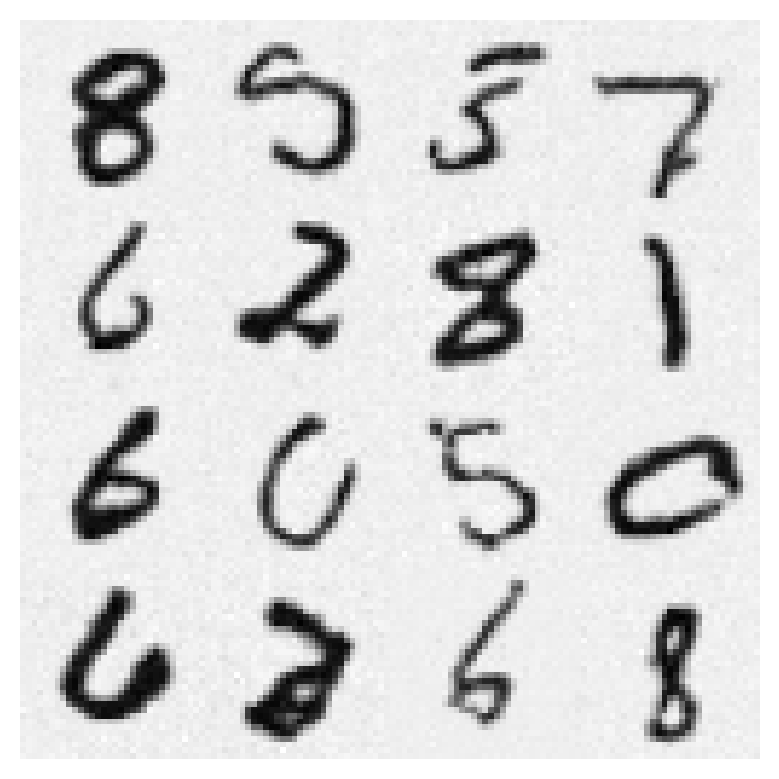 8 5 5 7
6 2 8 1
6 0 5 0
6 2 6 8